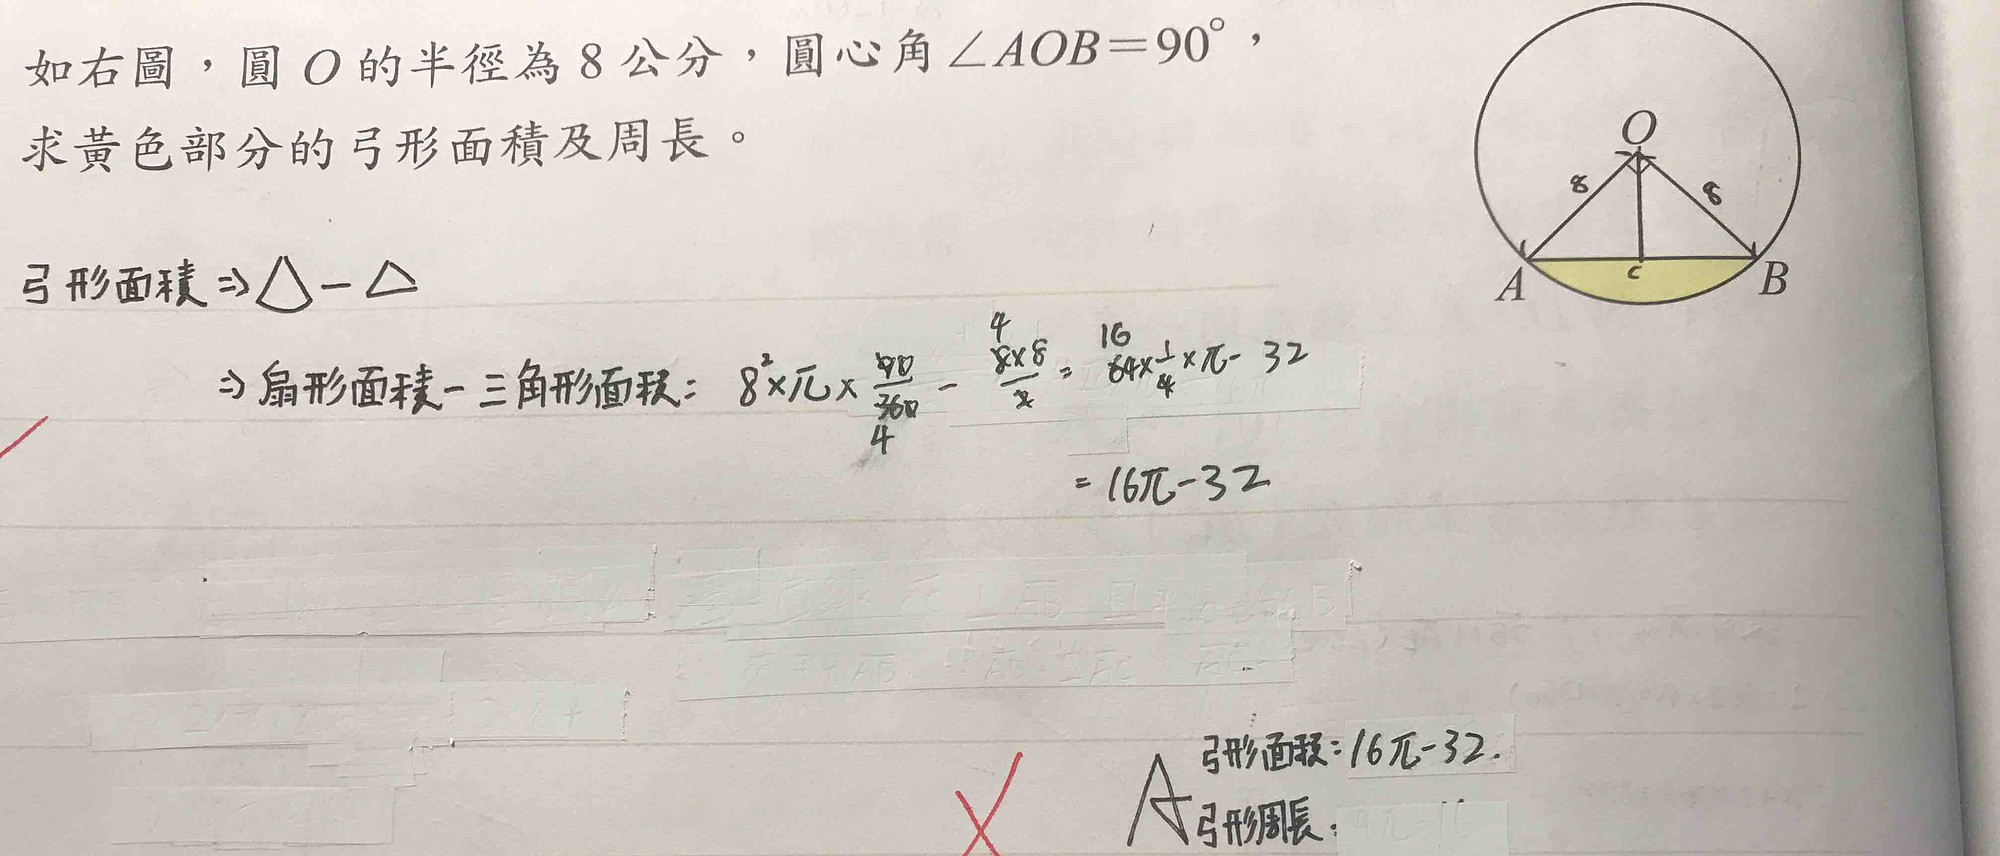 如右圖，圓 O 的半徑為 8 公分，圓心角 ∠AOB＝90°，
求黃色部分的弓形面積及周長。
O
8 8
A C B
弓形面積 ⇒ △ − △
⇒ 扇形面積 − 三角形面積: 8²×π×90/360 4 − 4 8×8/2 = 16 64×1/4×π − 32
= 16π − 32
A 弓形面積: 16π−32.
弓形周長: